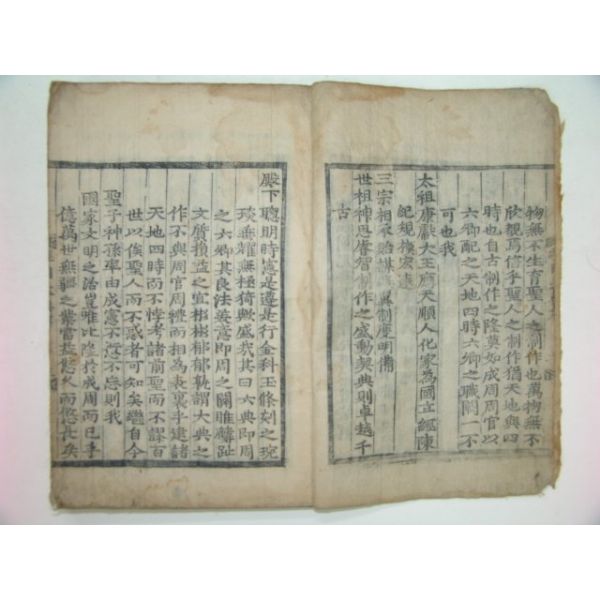 物無不生育聖人之制作也萬物無不
欣覩焉信乎聖人之制作猶天地與四
時也自古制作之隆莫如成周周官以
六卿配之天地四時六卿之職闕一不
可也我
太祖康獻大王膺天順人化家爲國立經陳
紀規模宏遠
三宗相承貽謀 翼制度明備
世祖神思睿智制作之盛動契典則卓越千
古
殿下聰明時憲是遵是行金科玉條刻之琬
琰垂耀無極猗歟盛哉我其曰六典卽周
之六卿其良法美意卽周之關雎麟趾
文質損益之宜彬彬郁郁孰謂大典之
作不與周官周禮而相爲表裏乎建諸
天地四時而不悖考諸前聖而不謬百
世以俟聖人而不惑者可知矣繼自今
聖子神孫率由成憲不愆不忘則我
國家文明之治豈唯比隆於成周而已乎
億萬世無疆之業當益悠久而悠長矣